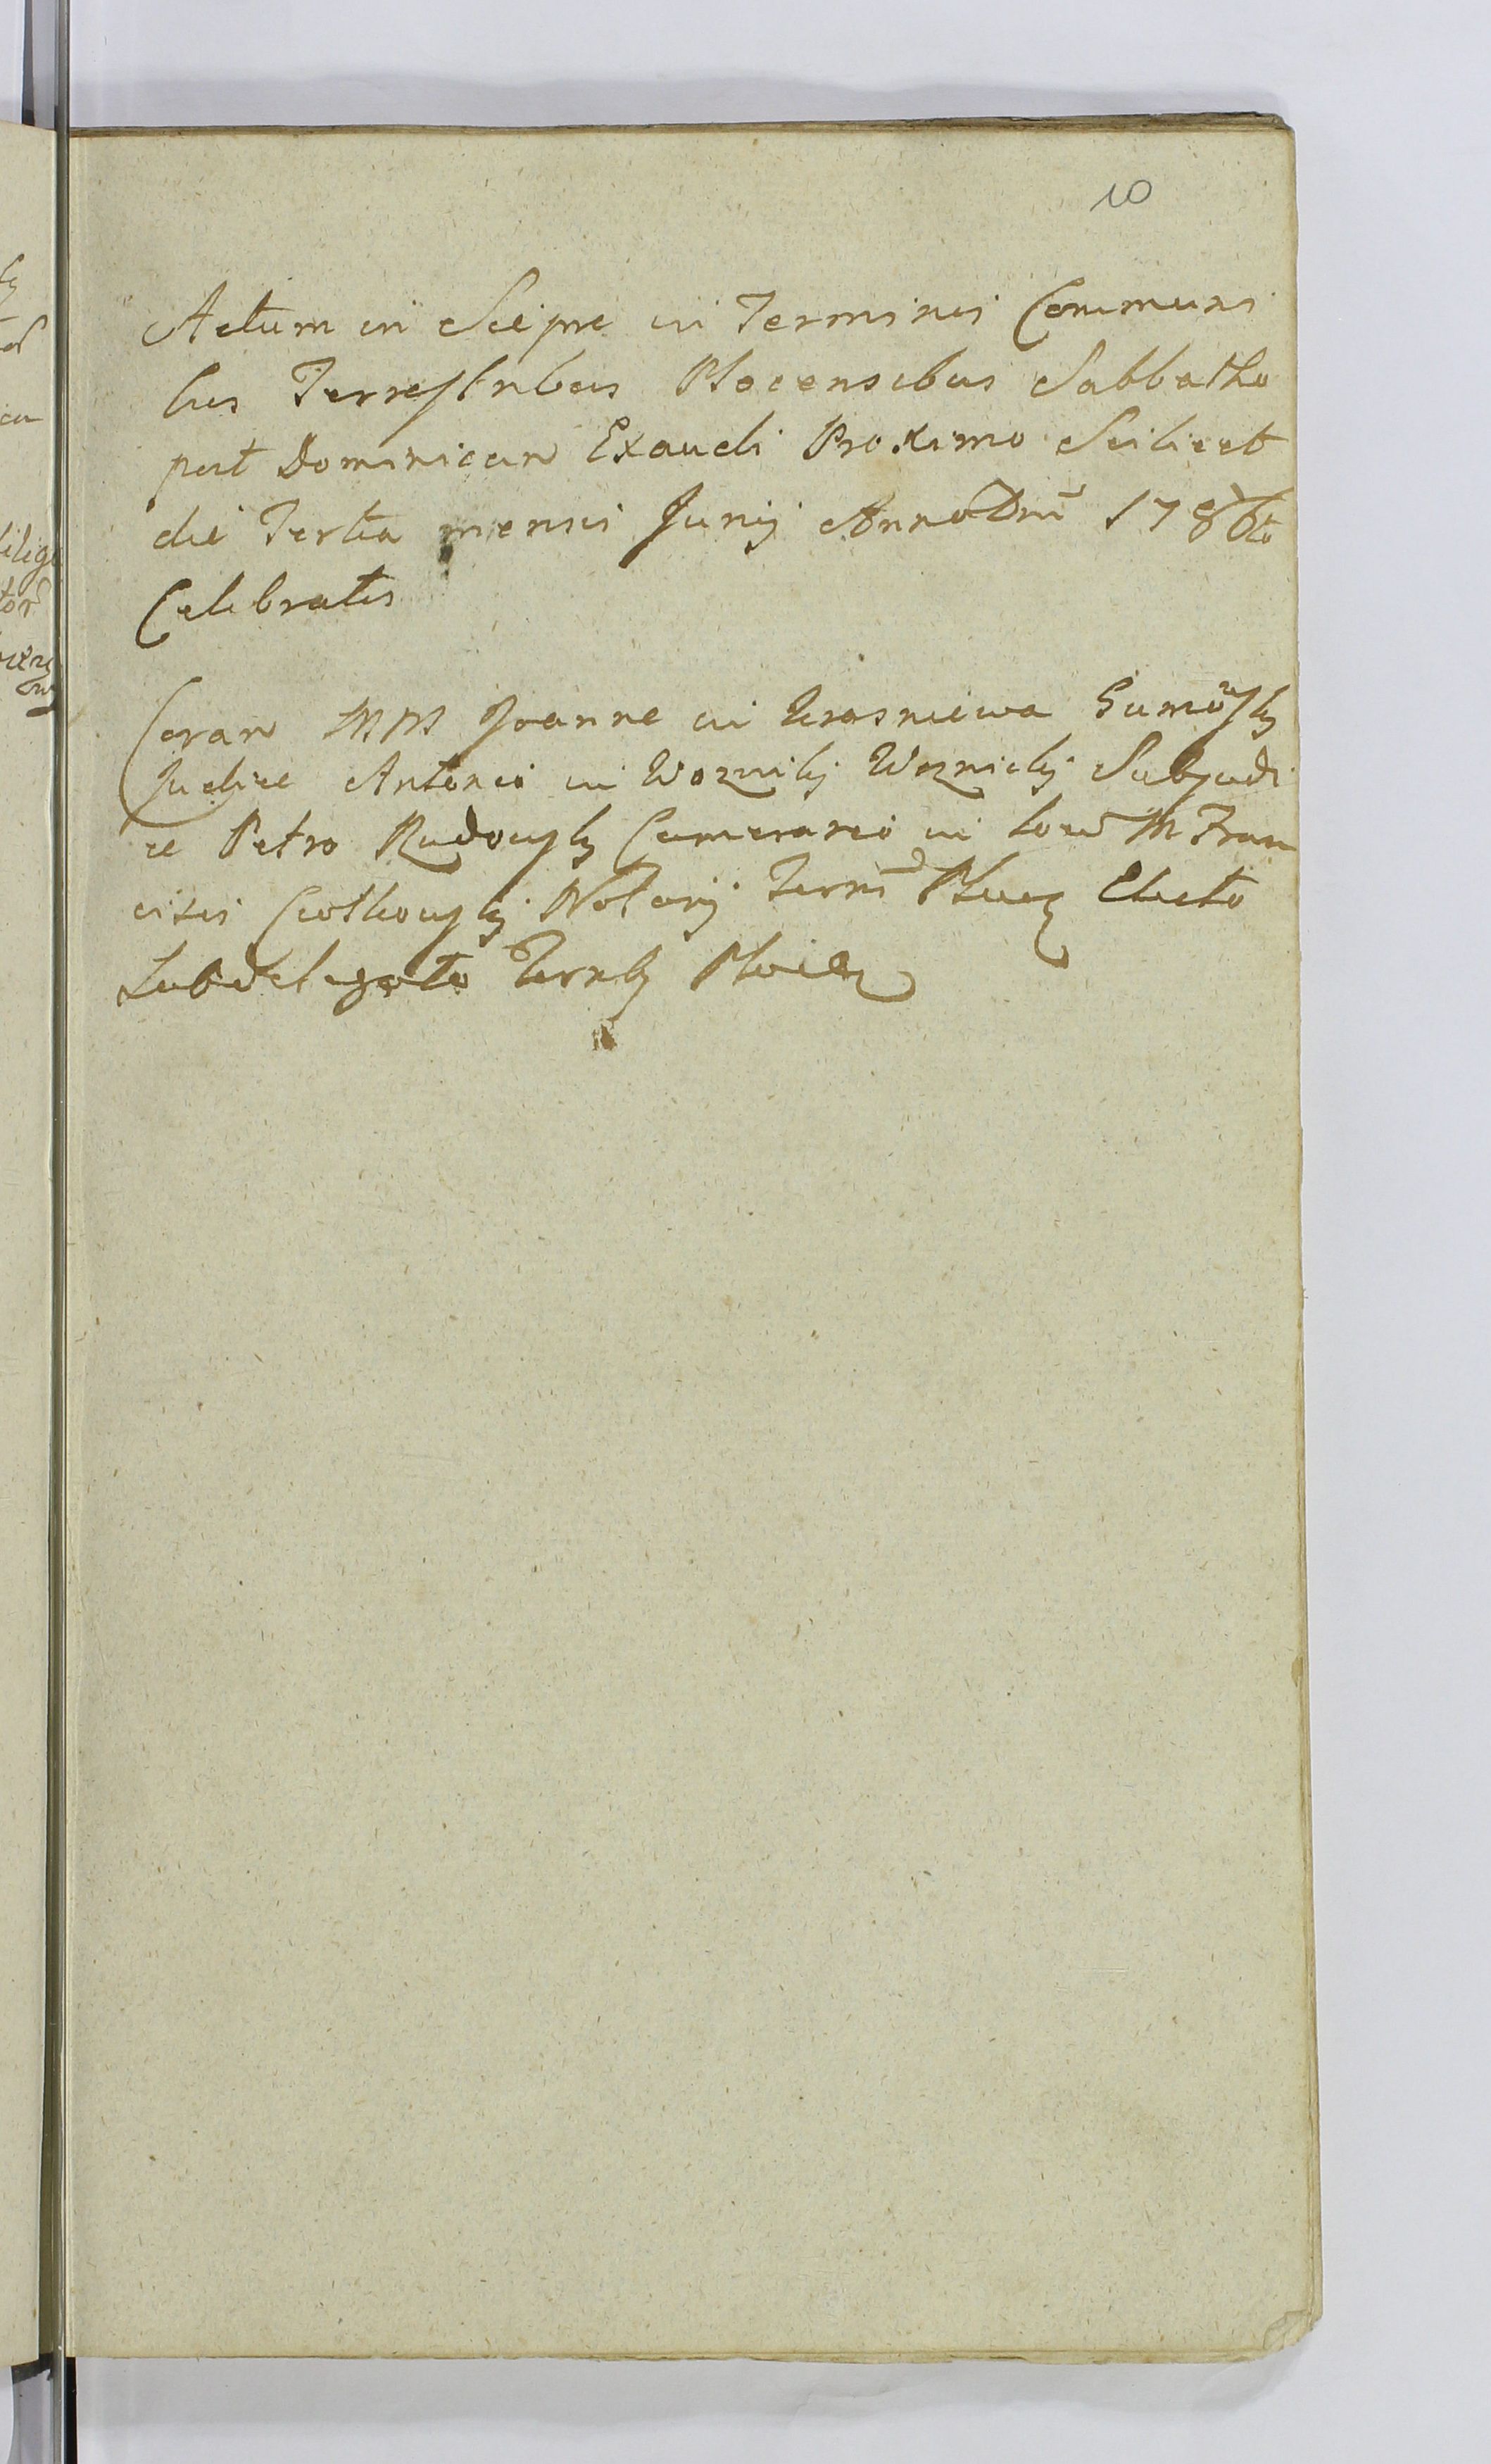 10
Actum in Sierpc in Terminis Communi
bus Terrestribus Plocensibus Sabbatho
post Dominicam Exaudi Proximo Scilicet
die Tertia mensis Junij Anno Dni 1786to
Celebratis
Coram MM Joanne in Krasniewa Gumowsky
Judice Antonio in Wozniky Woznicky Subjudi
ce Petro Rudowsky Camerario in loco M Fran
cisci Notarij Terris Electo
Subdelegato